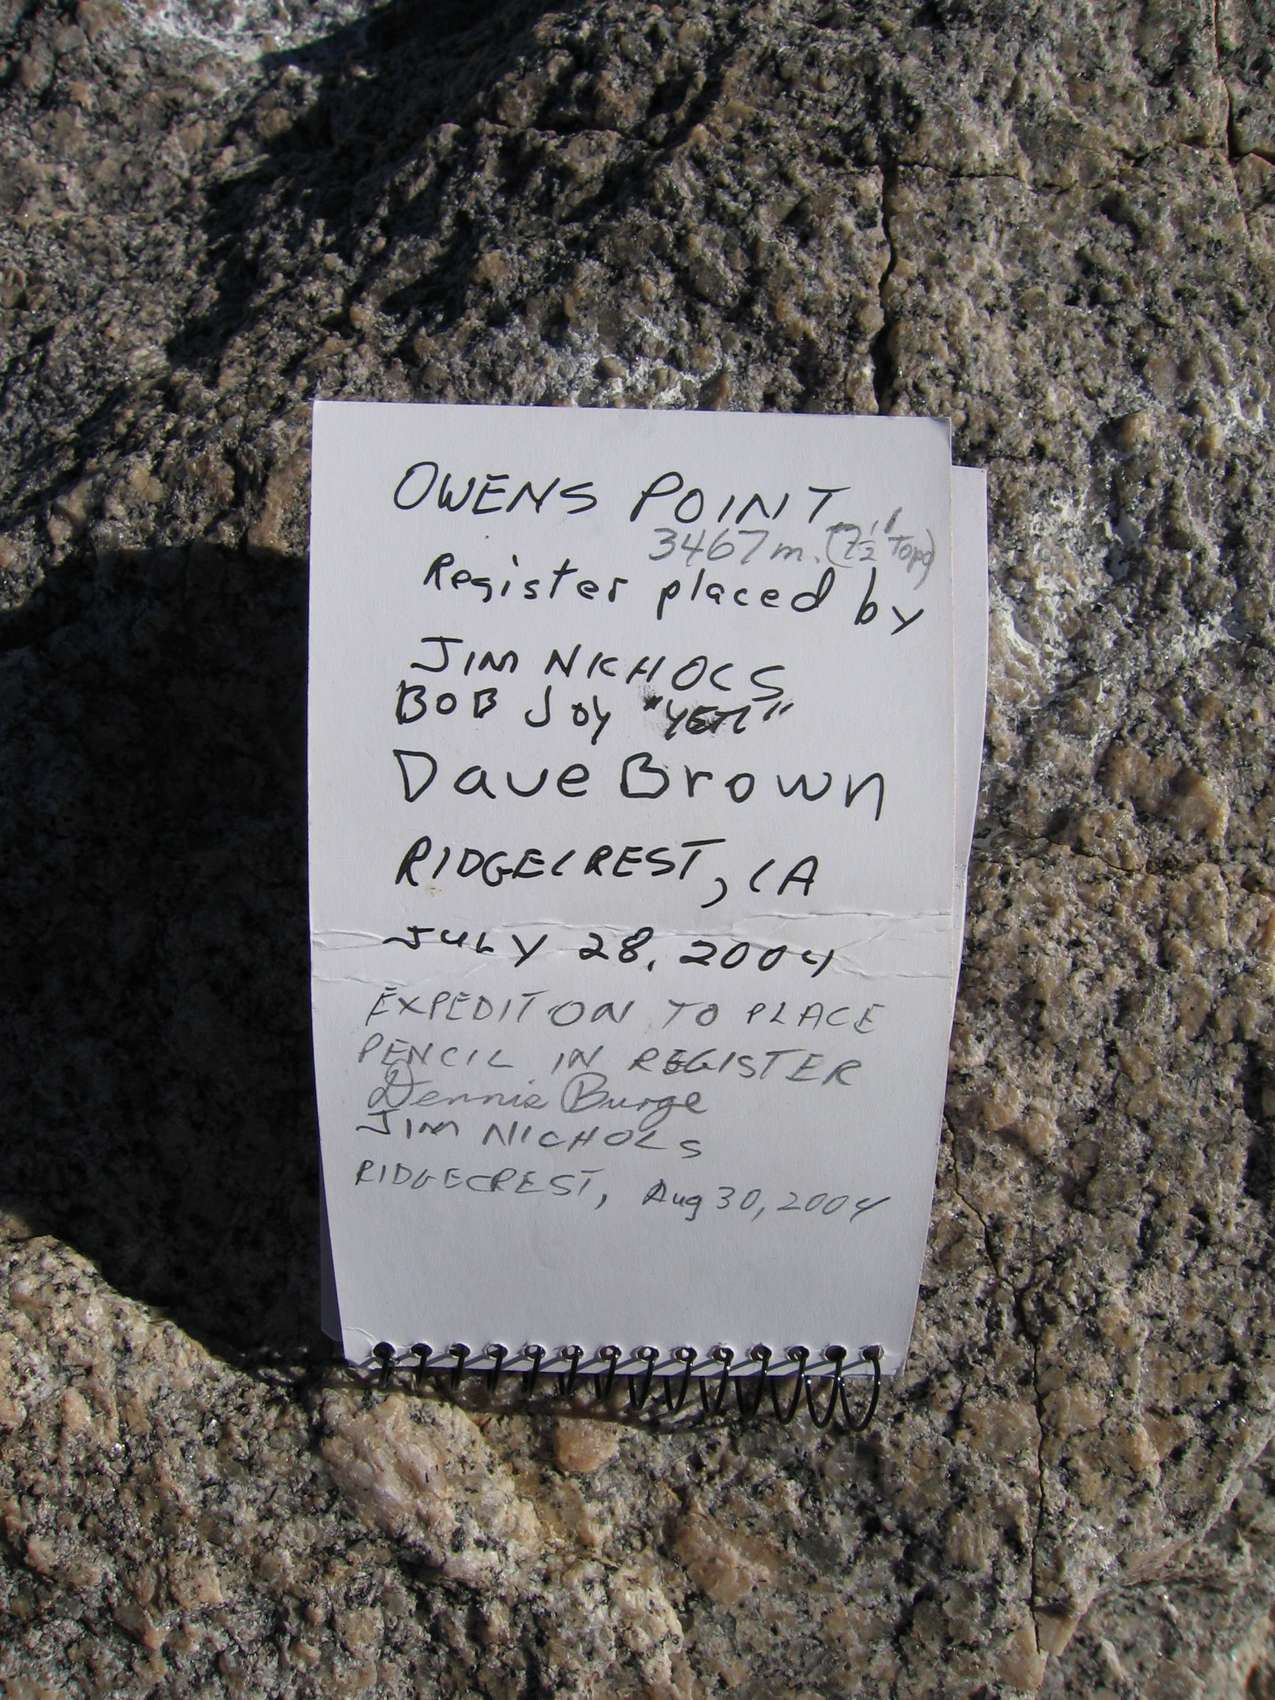 OWENS POINT
3467m. (7½' Topo)
Register placed by
JIM NICHOLS
BOB JOY "YETI"
Dave Brown
RIDGECREST, CA
JULY 28, 2004
EXPEDITION TO PLACE
PENCIL IN REGISTER
Dennis Burge
JIM NICHOLS
RIDGECREST, Aug 30, 2004